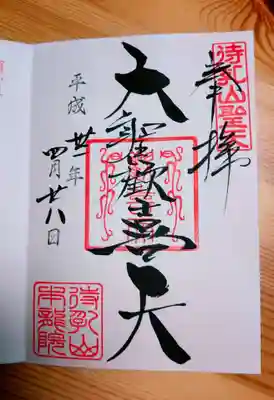 待乳山聖天
奉拝
大聖歡喜天
平成卅一年
四月廿八日
待乳山
本龍院